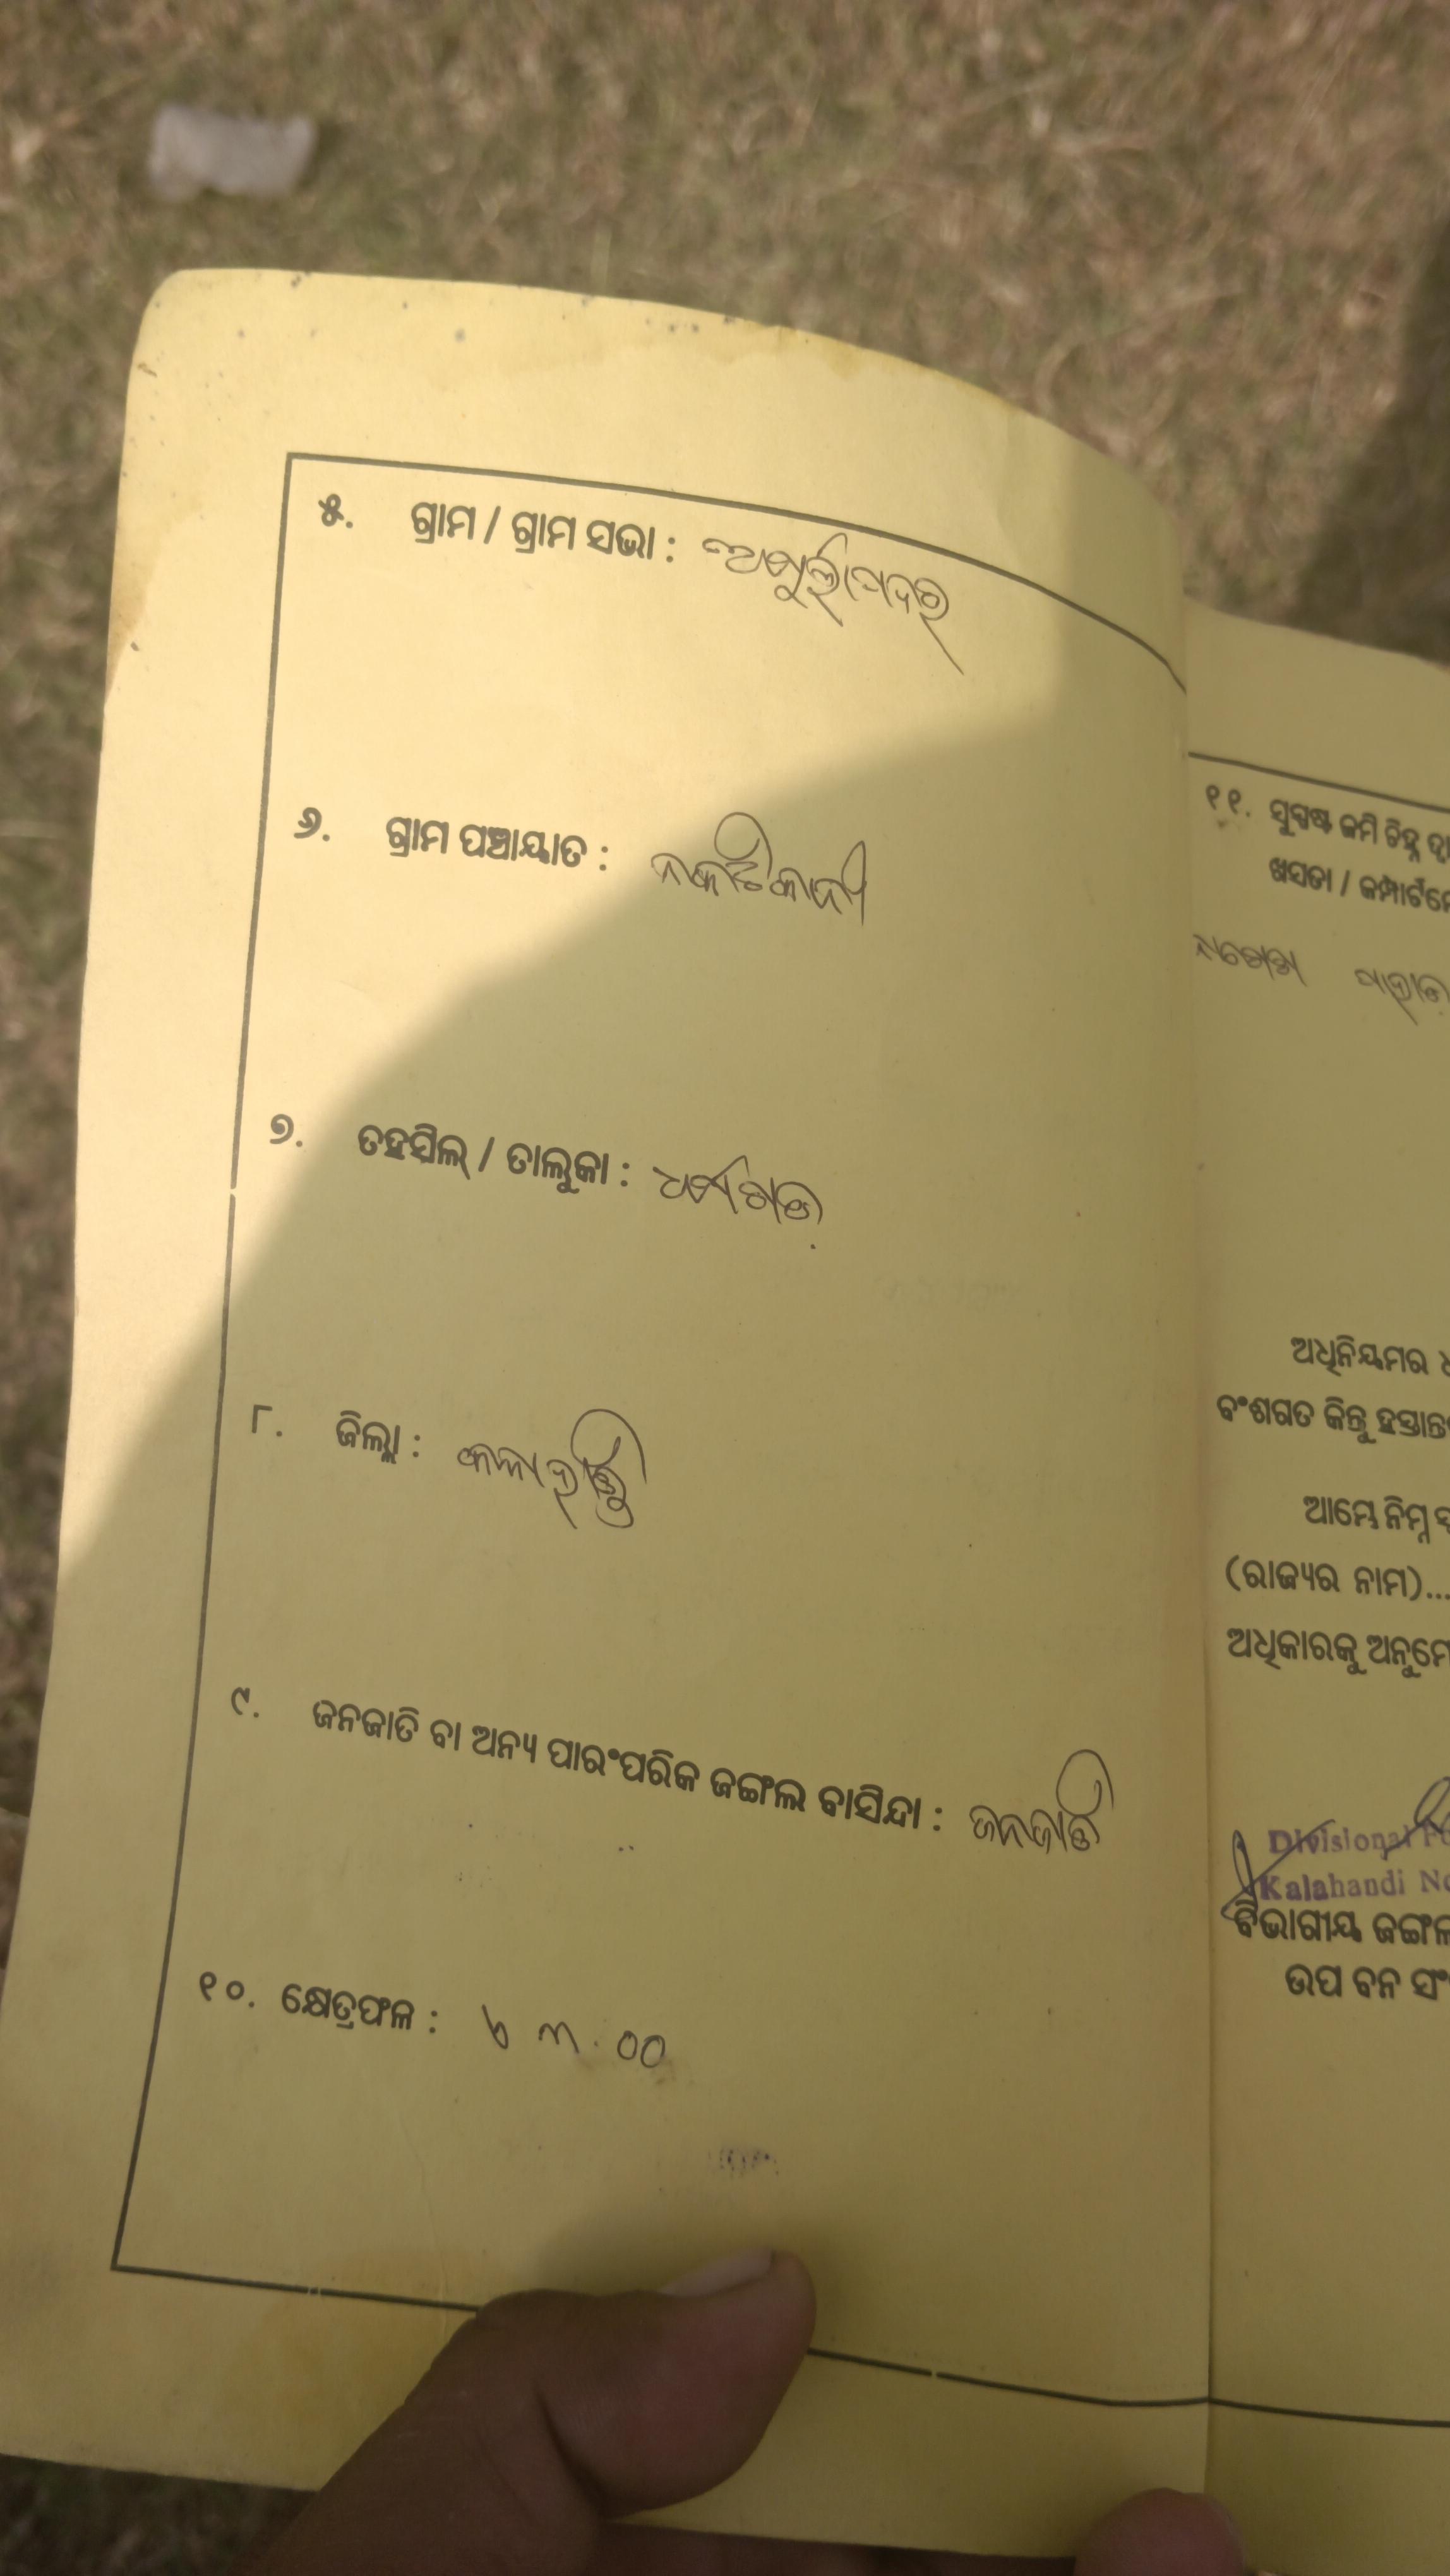 ୫. ଗ୍ରାମ / ଗ୍ରାମ ସଭା :
୬. ଗ୍ରାମ ପଞ୍ଚାୟାତ : ନକଟିକାନୀ
୭. ତହସିଲ୍ / ତାଲୁକା : ଧର୍ମଗଡ
୮. ଜିଲ୍ଲା : କଳାହାଣ୍ଡି
୯. ଜନଜାତି ବା ଅନ୍ୟ ପାରଂପରିକ ଜଙ୍ଗଲ ବାସିନ୍ଦା : ଜନଜାତି
୧୦. କ୍ଷେତ୍ରଫଳ : ୩.୦୦
୧୧. ସୁସ୍ପଷ୍ଟ ଜମି ଚିହ୍ନ
ଖସଡା /
ଅଧିନିୟମର
ବଂଶଗତ କିନ୍ତୁ
ଆମ୍ଭେ ନିମ୍ନ
(ରାଜ୍ୟର ନାମ)...
ଅଧିକାରକୁ
Divisional
Kalahandi
ବିଭାଗୀୟ ଜଙ୍ଗଲ
ଉପ ବନ